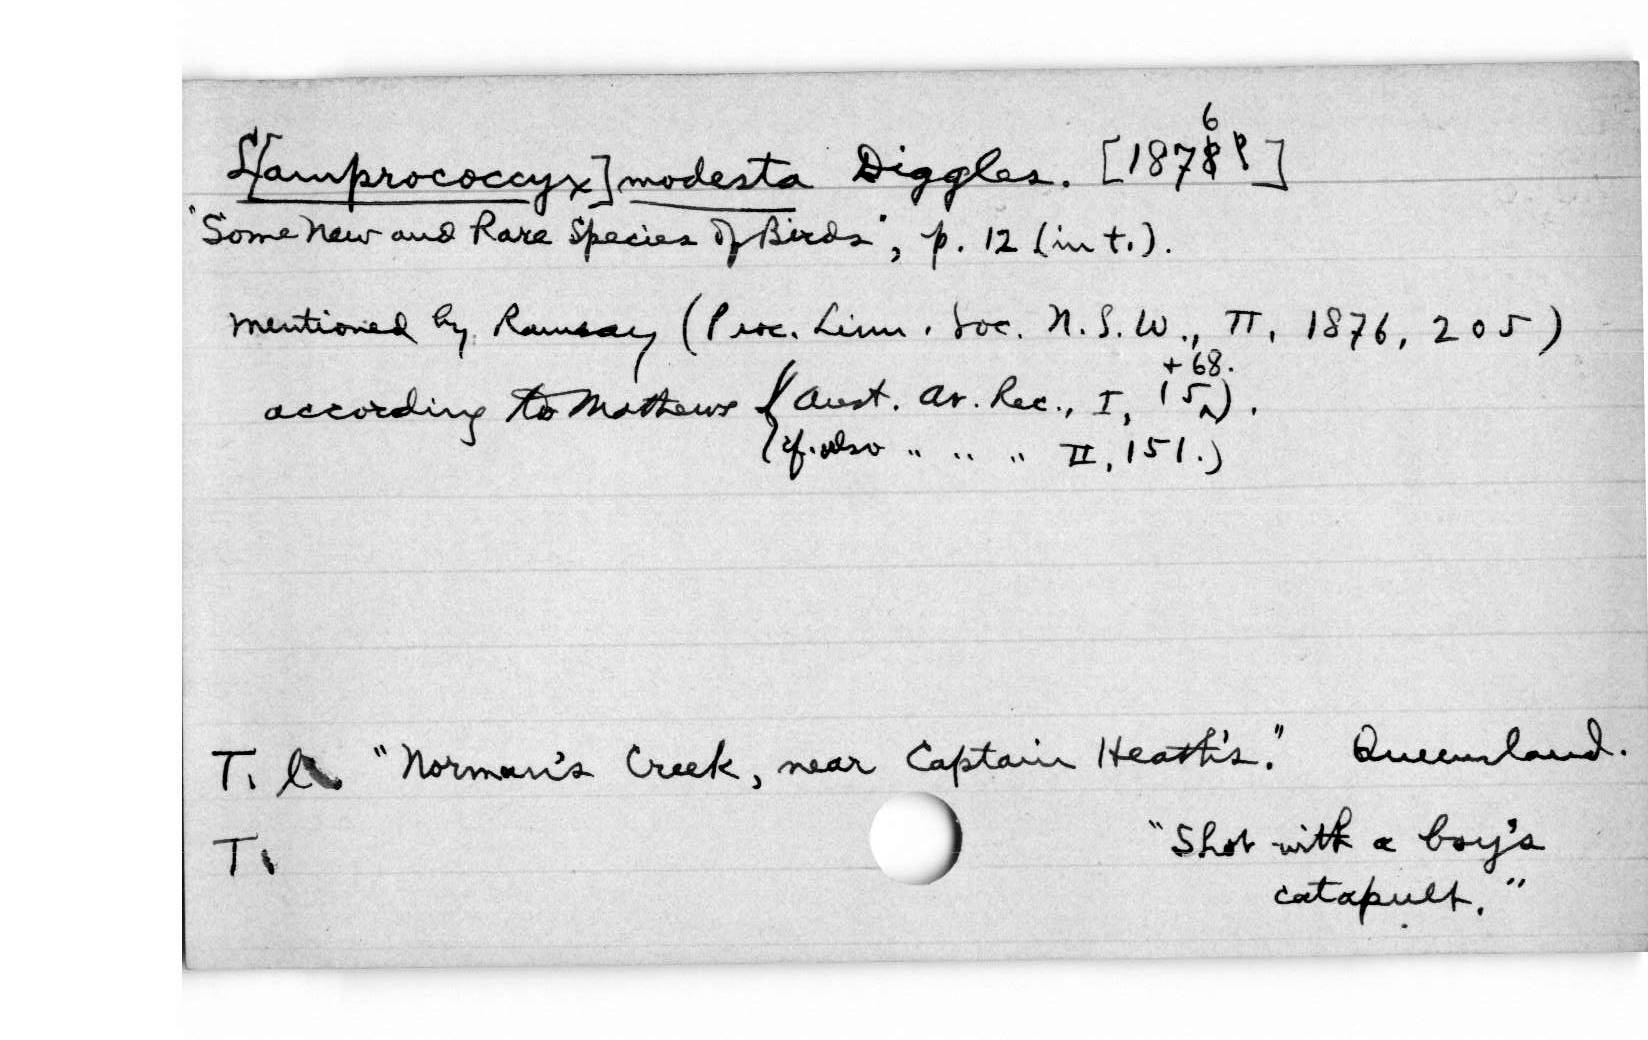 L[amprococcyx] modesta Diggles. [1876?]
"Some New and Rare Species of Birds", p. 12 (in t.).
mentioned by Ramsay (Proc. Linn. Soc. N.S.W., II, 1876, 205)
according to Mathews (Aust. Av. Rec., I, 15 + 68.).
(cf. also " " " II, 151.)
T. l. "Norman's Creek, near Captain Heath's." Queensland.
T.
"Shot with a boy's
catapult."